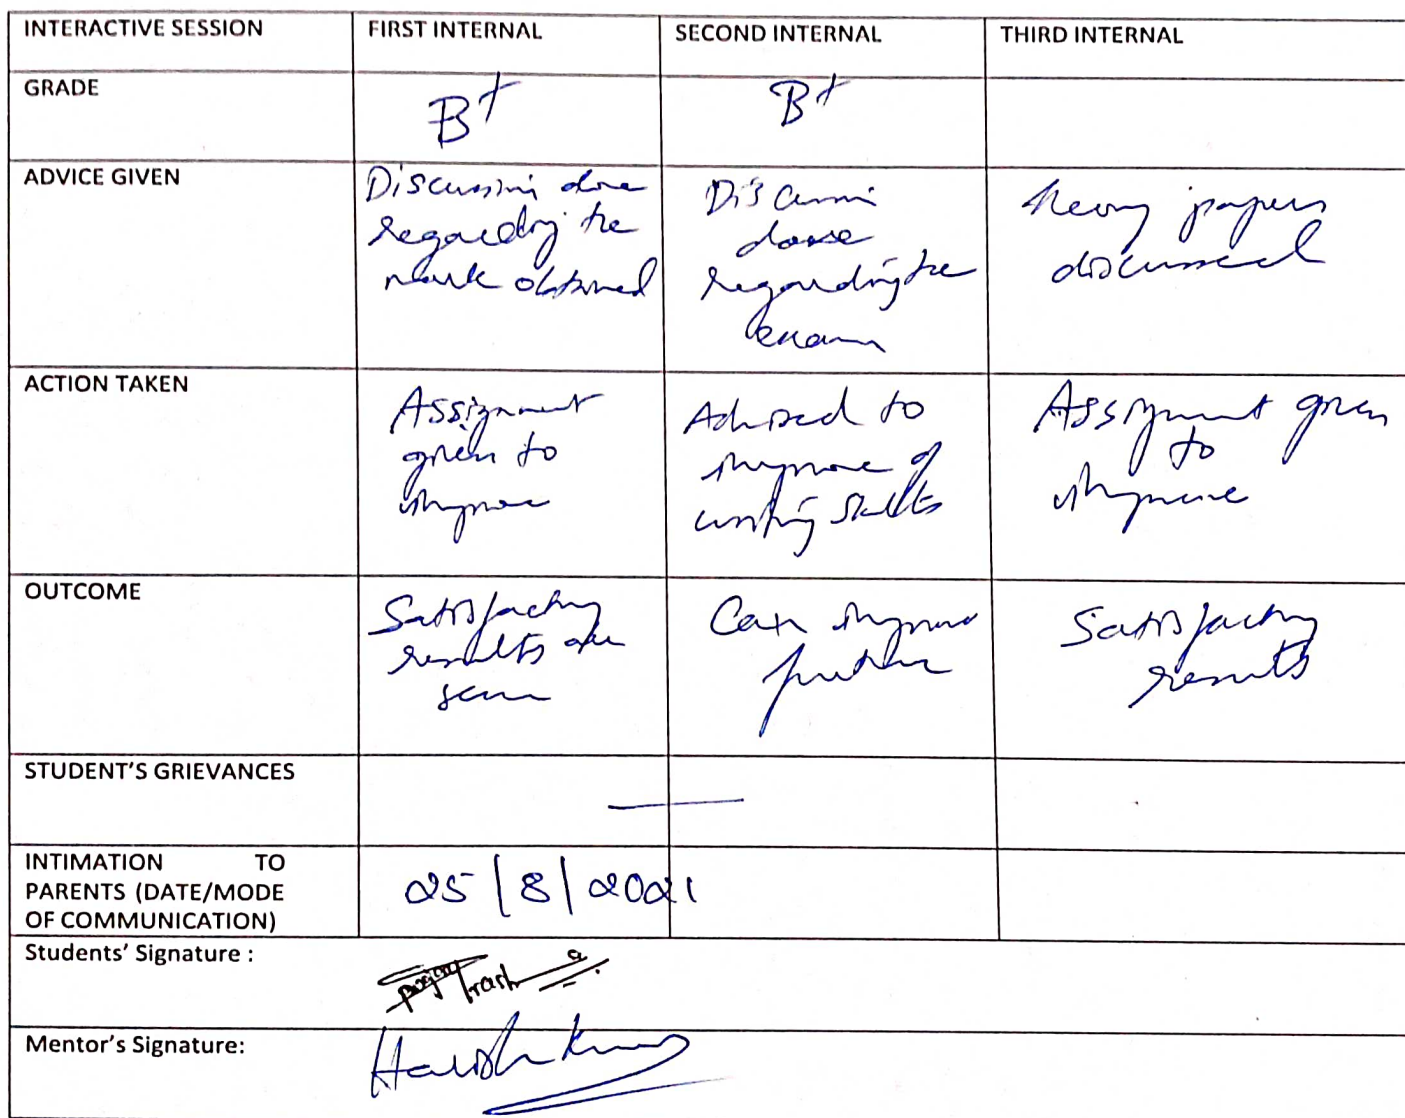 INTERACTIVE SESSION FIRST INTERNAL SECOND INTERNAL THIRD INTERNAL
GRADE B+ B+
ADVICE GIVEN
Discussion done
regarding the
mark obtained
Discussion
done
regarding the
exam
papers
discussed
ACTION TAKEN
Assignment
given to
improve
Advised to
improve
writing skills
Assignment given
to
improve
OUTCOME
Satisfactory
results are
seen
Can improve
further
Satisfactory
results
STUDENT'S GRIEVANCES —
INTIMATION TO
PARENTS (DATE/MODE
OF COMMUNICATION)
25/8/2021
Students' Signature :
Mentor's Signature: